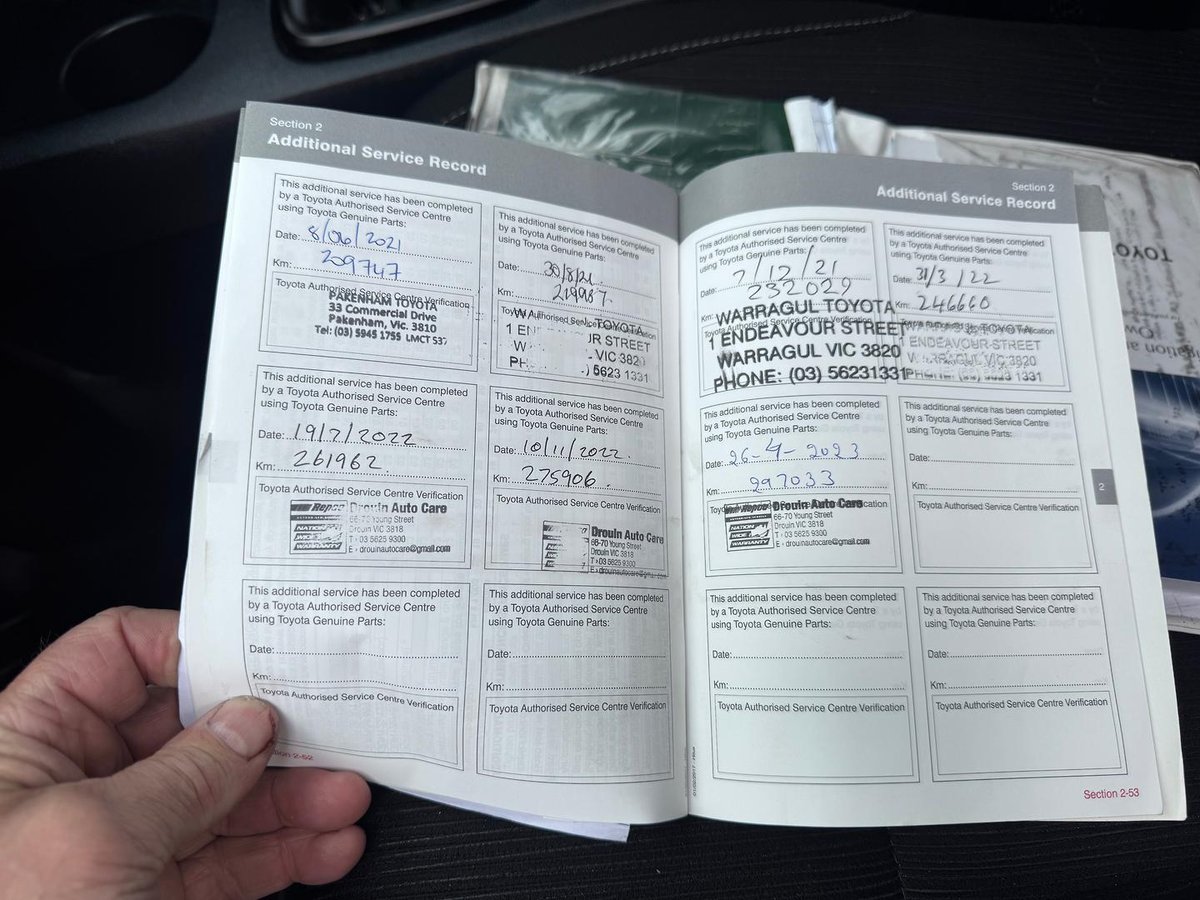 Section 2
Additional Service Record
This additional service has been completed
by a Toyota Authorised Service Centre
using Toyota Genuine Parts:
Date: 8/06/2021
Km: 209747
Toyota Authorised Service Centre Verification
PAKENHAM TOYOTA
33 Commercial Drive
Pakenham, Vic. 3810
Tel: (03) 5945 1755 LMCT 537
This additional service has been completed
by a Toyota Authorised Service Centre
using Toyota Genuine Parts:
Date: 30/8/21.
Km: 219987.
TOYOTA
1 EN UR STREET
VIC 3820
PH 5623 1331
This additional service has been completed
by a Toyota Authorised Service Centre
using Toyota Genuine Parts:
Date: 19/7/2022
Km: 261962.
Toyota Authorised Service Centre Verification
Repco Drouin Auto Care
66-70 Young Street
Drouin VIC 3818
T : 03 5625 9300
E : drouinautocare@gmail.com
NATION
WIDE
WARRANTY
This additional service has been completed
by a Toyota Authorised Service Centre
using Toyota Genuine Parts:
Date: 10/11/2022.
Km: 275906.
Toyota Authorised Service Centre Verification
Drouin Auto Care
66-70 Young Street
Drouin VIC 3818
T : 03 5625 9300
E : drouinautocare@gmail.com
This additional service has been completed
by a Toyota Authorised Service Centre
using Toyota Genuine Parts:
Date:
Km:
Toyota Authorised Service Centre Verification
This additional service has been completed
by a Toyota Authorised Service Centre
using Toyota Genuine Parts:
Date:
Km:
Toyota Authorised Service Centre Verification
Section 2-52
Section 2
Additional Service Record
This additional service has been completed
by a Toyota Authorised Service Centre
using Toyota Genuine Parts:
Date: 7/12/21
Km: 232029
WARRAGUL TOYOTA
1 ENDEAVOUR STREET
WARRAGUL VIC 3820
PHONE: (03) 56231331
This additional service has been completed
by a Toyota Authorised Service Centre
using Toyota Genuine Parts:
Date: 31/3/22
Km: 246660
TOYOTA
1 ENDEAVOUR STREET
WARRAGUL VIC 3820
PHONE: (03) 5623 1331
This additional service has been completed
by a Toyota Authorised Service Centre
using Toyota Genuine Parts:
Date: 26-4-2023
Km: 297033
Toyota Authorised Service Centre Verification
Repco Drouin Auto Care
66-70 Young Street
Drouin VIC 3818
T : 03 5625 9300
E : drouinautocare@gmail.com
NATION
WIDE
WARRANTY
This additional service has been completed
by a Toyota Authorised Service Centre
using Toyota Genuine Parts:
Date:
Km:
Toyota Authorised Service Centre Verification
This additional service has been completed
by a Toyota Authorised Service Centre
using Toyota Genuine Parts:
Date:
Km:
Toyota Authorised Service Centre Verification
This additional service has been completed
by a Toyota Authorised Service Centre
using Toyota Genuine Parts:
Date:
Km:
Toyota Authorised Service Centre Verification
2
Section 2-53
TOYOT